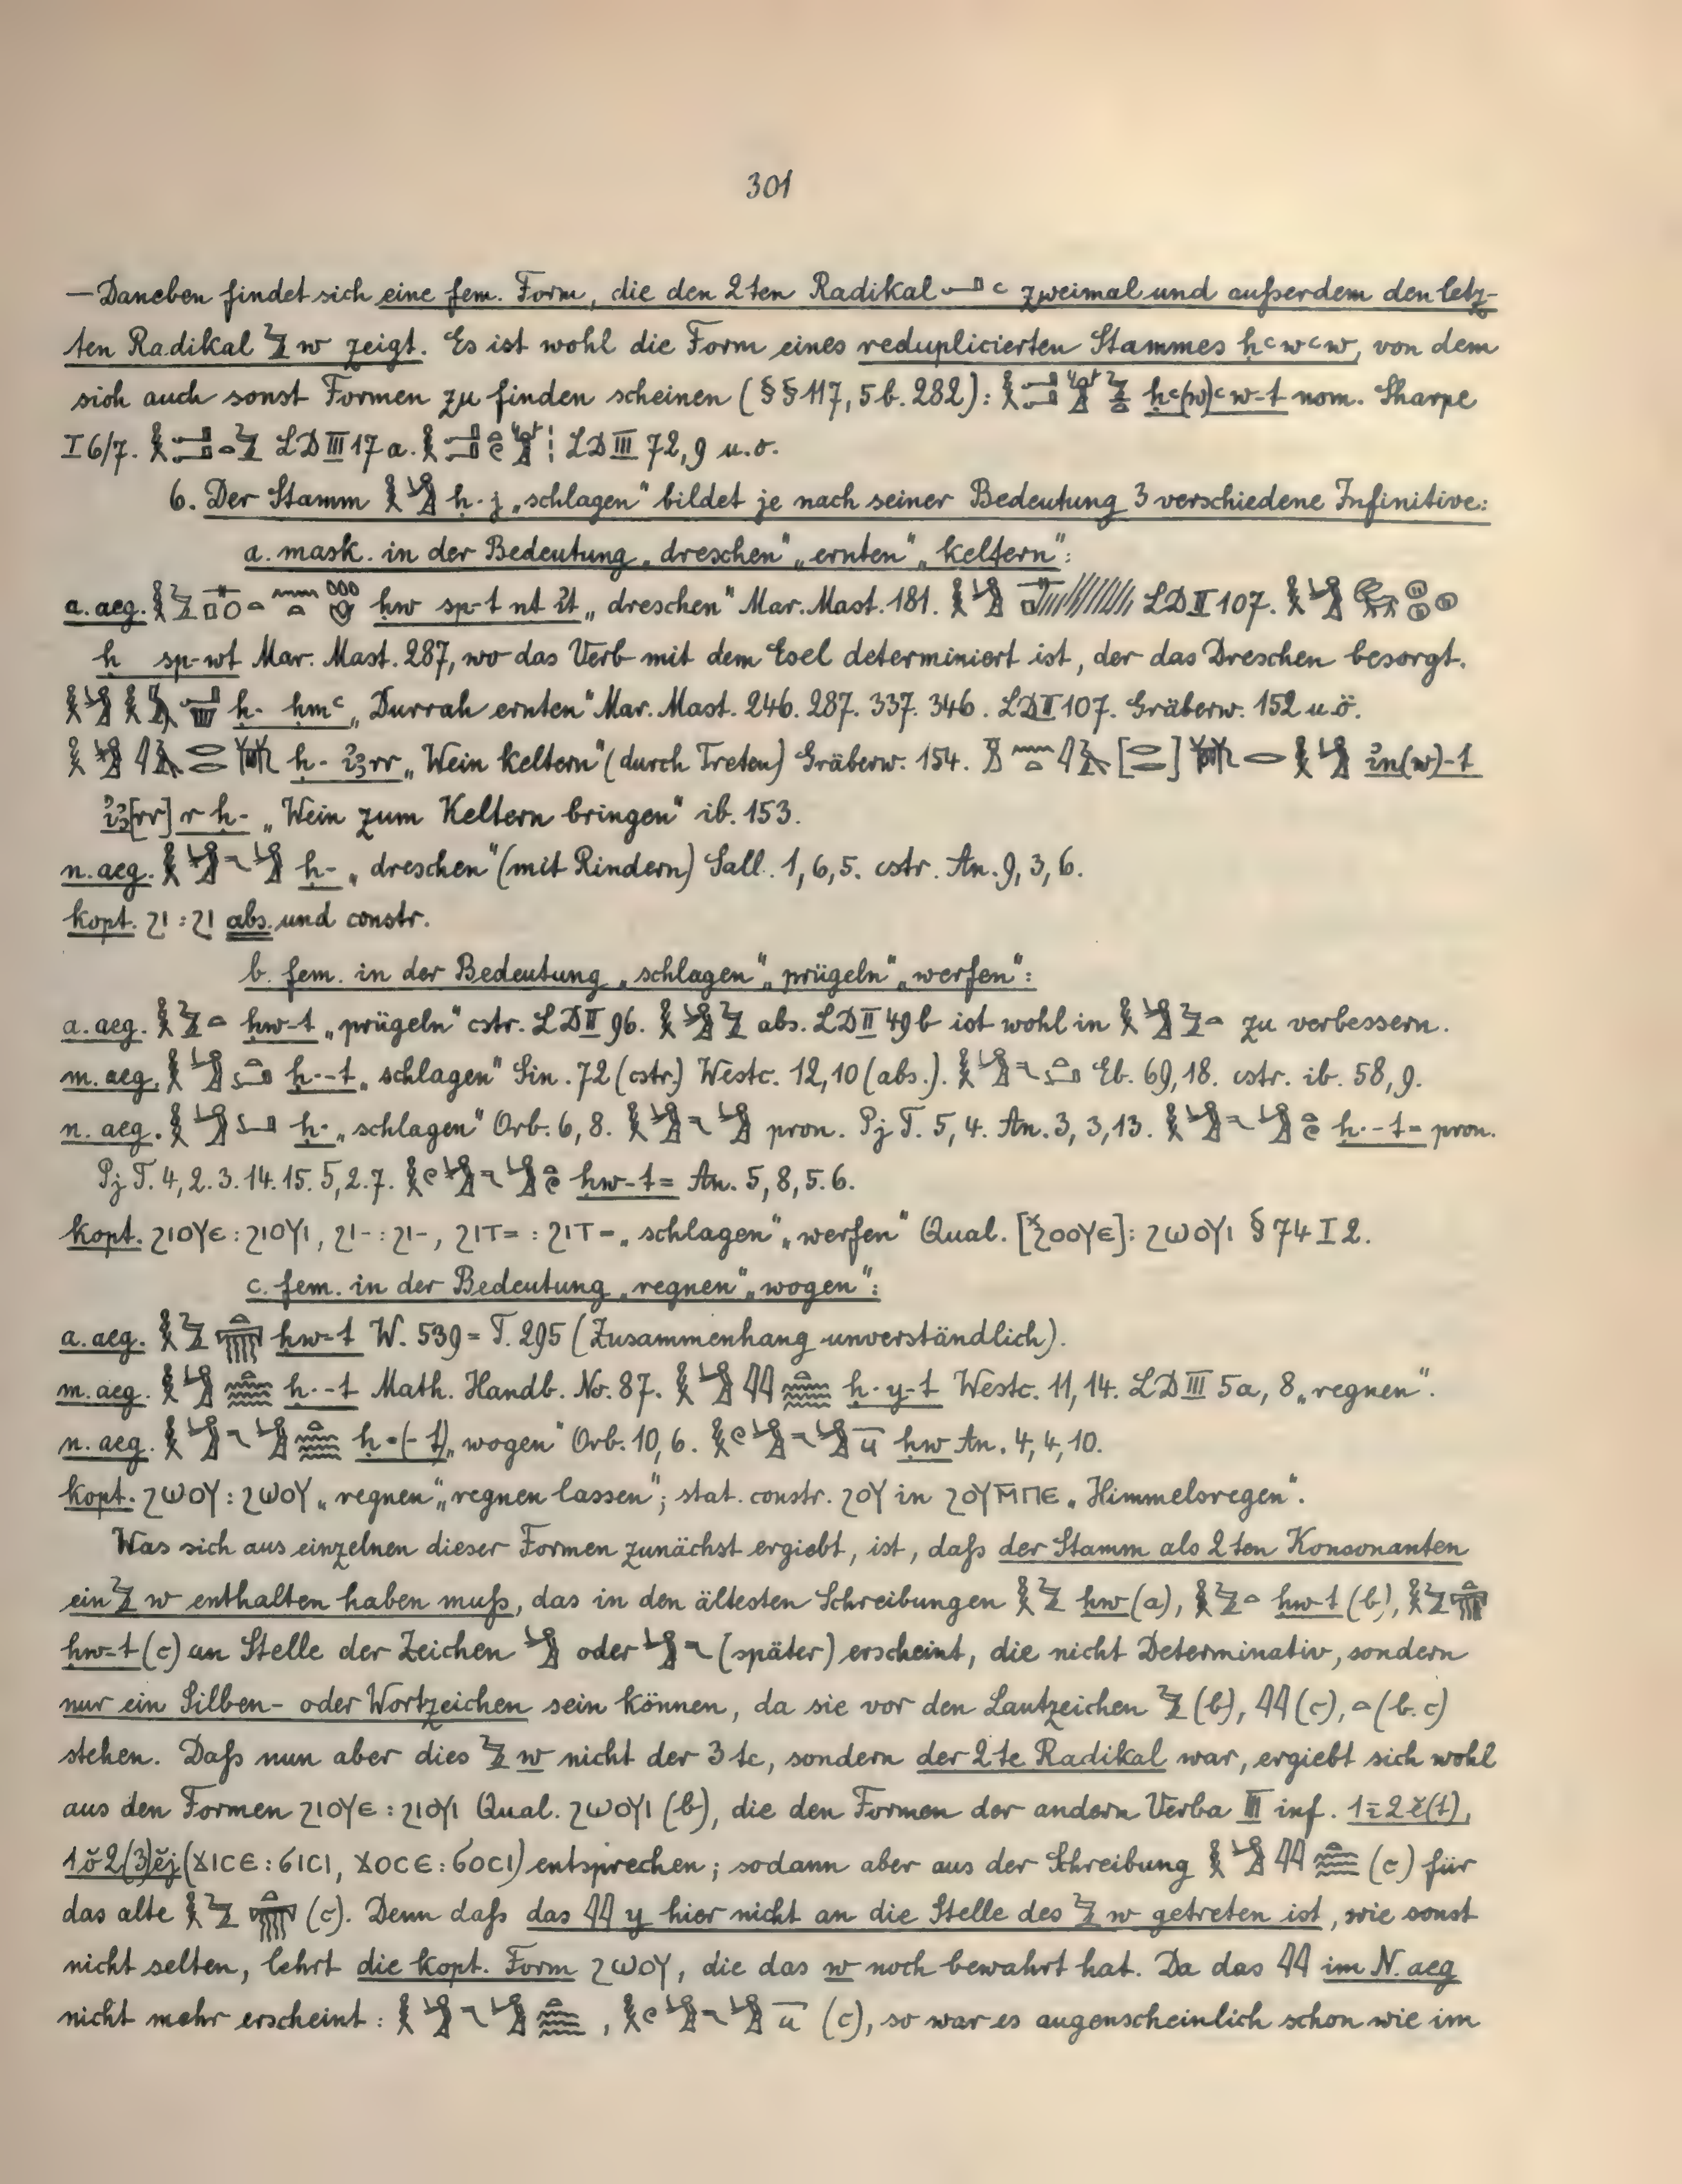 301
— Daneben findet sich eine fem. Form, die den 2ten Radikal 𓂝 ꜥ zweimal und außerdem den letz-
ten Radikal 𓅱 w zeigt. Es ist wohl die Form eines reduplicierten Stammes ḥꜥwꜥw, von dem
sich auch sonst Formen zu finden scheinen (§§ 117, 5b. 282): ḥꜥ(w)ꜥw-t nom. Sharpe
I 6/7. LD III 17 a. LD III 72, 9 u. o.
6. Der Stamm ḥ·j „schlagen“ bildet je nach seiner Bedeutung 3 verschiedene Infinitive:
a. mask. in der Bedeutung „dreschen“ „ernten“ „keltern“:
a. aeg. ḥw sp-t nt ỉt „dreschen“ Mar. Mast. 181. LD II 107.
ḥ sp-wt Mar. Mast. 287, wo das Verb mit dem Esel determiniert ist, der das Dreschen besorgt.
ḥ· ḥmꜥ „Durrah ernten“ Mar. Mast. 246. 287. 337. 346. LD II 107. Gräberw. 152 u. ö.
ḥ· ỉꜣrr „Wein keltern“ (durch Treten) Gräberw. 154. ỉn(w)-t
ỉꜣ[rr] r ḥ- „Wein zum Keltern bringen“ ib. 153.
n. aeg. ḥ- „dreschen“ (mit Rindern) Sall. 1, 6, 5. cstr. An. 9, 3, 6.
kopt. ϩⲓ : ϩⲓ abs. und constr.
b. fem. in der Bedeutung „schlagen“ „prügeln“ „werfen“:
a. aeg. 𓎛𓅱𓏏 ḥw-t „prügeln“ cstr. LD II 96. abs. LD II 49 b ist wohl in zu verbessern.
m. aeg. ḥ·-t „schlagen“ Sin. 72 (cstr.) Westc. 12, 10 (abs.). Eb. 69, 18. cstr. ib. 58, 9.
n. aeg. ḥ· „schlagen“ Orb. 6, 8. pron. Pj T. 5, 4. An. 3, 3, 13. ḥ·-t= pron.
Pj T. 4, 2. 3. 14. 15. 5, 2. 7. ḥw-t= An. 5, 8, 5. 6.
kopt. ϩⲓⲟⲩⲉ : ϩⲓⲟⲩⲓ, ϩⲓ- : ϩⲓ-, ϩⲓⲧ= : ϩⲓⲧ= „schlagen“ „werfen“ Qual. [*ϩⲟⲟⲩⲉ] : ϩⲱⲟⲩⲓ § 74 I 2.
c. fem. in der Bedeutung „regnen“ „wogen“:
a. aeg. ḥw-t W. 539 = T. 295 (Zusammenhang unverständlich).
m. aeg. ḥ·-t Math. Handb. No. 87. ḥ·y-t Westc. 11, 14. LD III 5a, 8 „regnen“.
n. aeg. ḥ·(-t) „wogen“ Orb. 10, 6. ḥw An. 4, 4, 10.
kopt. ϩⲱⲟⲩ : ϩⲱⲟⲩ „regnen“ „regnen lassen“; stat. constr. ϩⲟⲩ in ϩⲟⲩⲙ̄ⲡⲉ „Himmelsregen“.
Was sich aus einzelnen dieser Formen zunächst ergiebt, ist, daß der Stamm als 2ten Konsonanten
ein 𓅱 w enthalten haben muß, das in den ältesten Schreibungen 𓎛𓅱 ḥw (a), 𓎛𓅱𓏏 ḥw-t (b),
ḥw-t (c) an Stelle der Zeichen oder (später) erscheint, die nicht Determinativ, sondern
nur ein Silben- oder Wortzeichen sein können, da sie vor den Lautzeichen 𓅱 (b), 𓇌 (c), 𓏏 (b. c)
stehen. Daß nun aber dies 𓅱 w nicht der 3te, sondern der 2te Radikal war, ergiebt sich wohl
aus den Formen ϩⲓⲟⲩⲉ : ϩⲓⲟⲩⲓ Qual. ϩⲱⲟⲩⲓ (b), die den Formen der andern Verba III inf. 1ī2ĕ(t),
1ŏ2(3)ĕj (ϫⲓⲥⲉ : ϭⲓⲥⲓ, ϫⲟⲥⲉ : ϭⲟⲥⲓ) entsprechen; sodann aber aus der Schreibung (c) für
das alte (c). Denn daß das 𓇌 y hier nicht an die Stelle des 𓅱 w getreten ist, wie sonst
nicht selten, lehrt die kopt. Form ϩⲱⲟⲩ, die das w noch bewahrt hat. Da das 𓇌 im N. aeg
nicht mehr erscheint : , (c), so war es augenscheinlich schon wie im